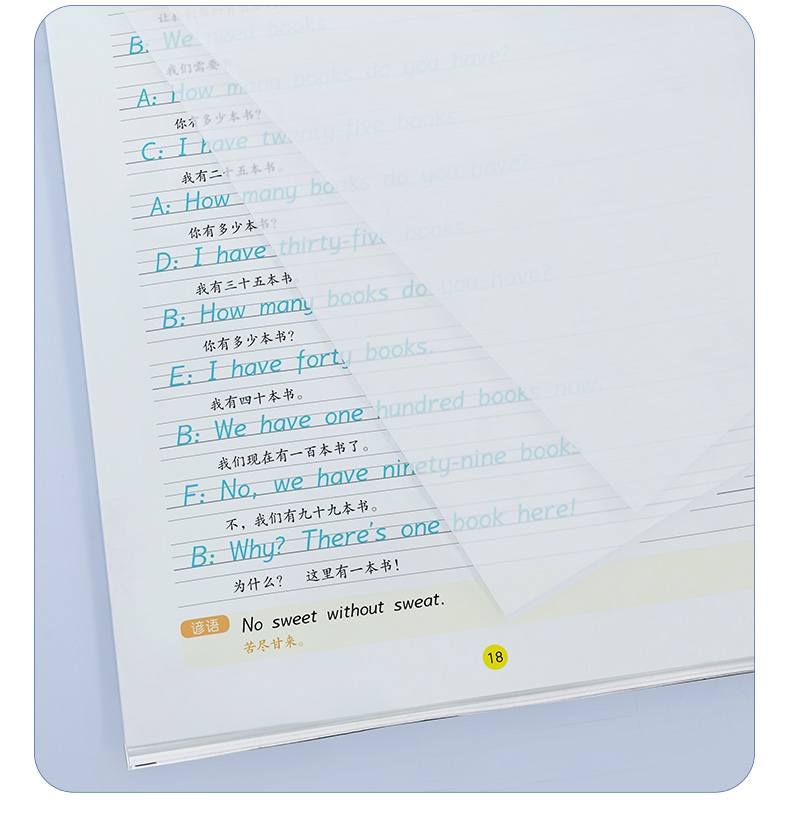 B: We need books.
我们需要
A: How many books do you have?
你有多少本书?
C: I have twenty-five books.
我有二十五本书。
A: How many books do you have?
你有多少本书?
D: I have thirty-five books.
我有三十五本书。
B: How many books do you have?
你有多少本书?
E: I have forty books.
我有四十本书。
B: We have one hundred books now.
我们现在有一百本书了。
F: No, we have ninety-nine books.
不，我们有九十九本书。
B: Why? There's one book here!
为什么? 这里有一本书!
谚语 No sweet without sweat.
苦尽甘来。
18